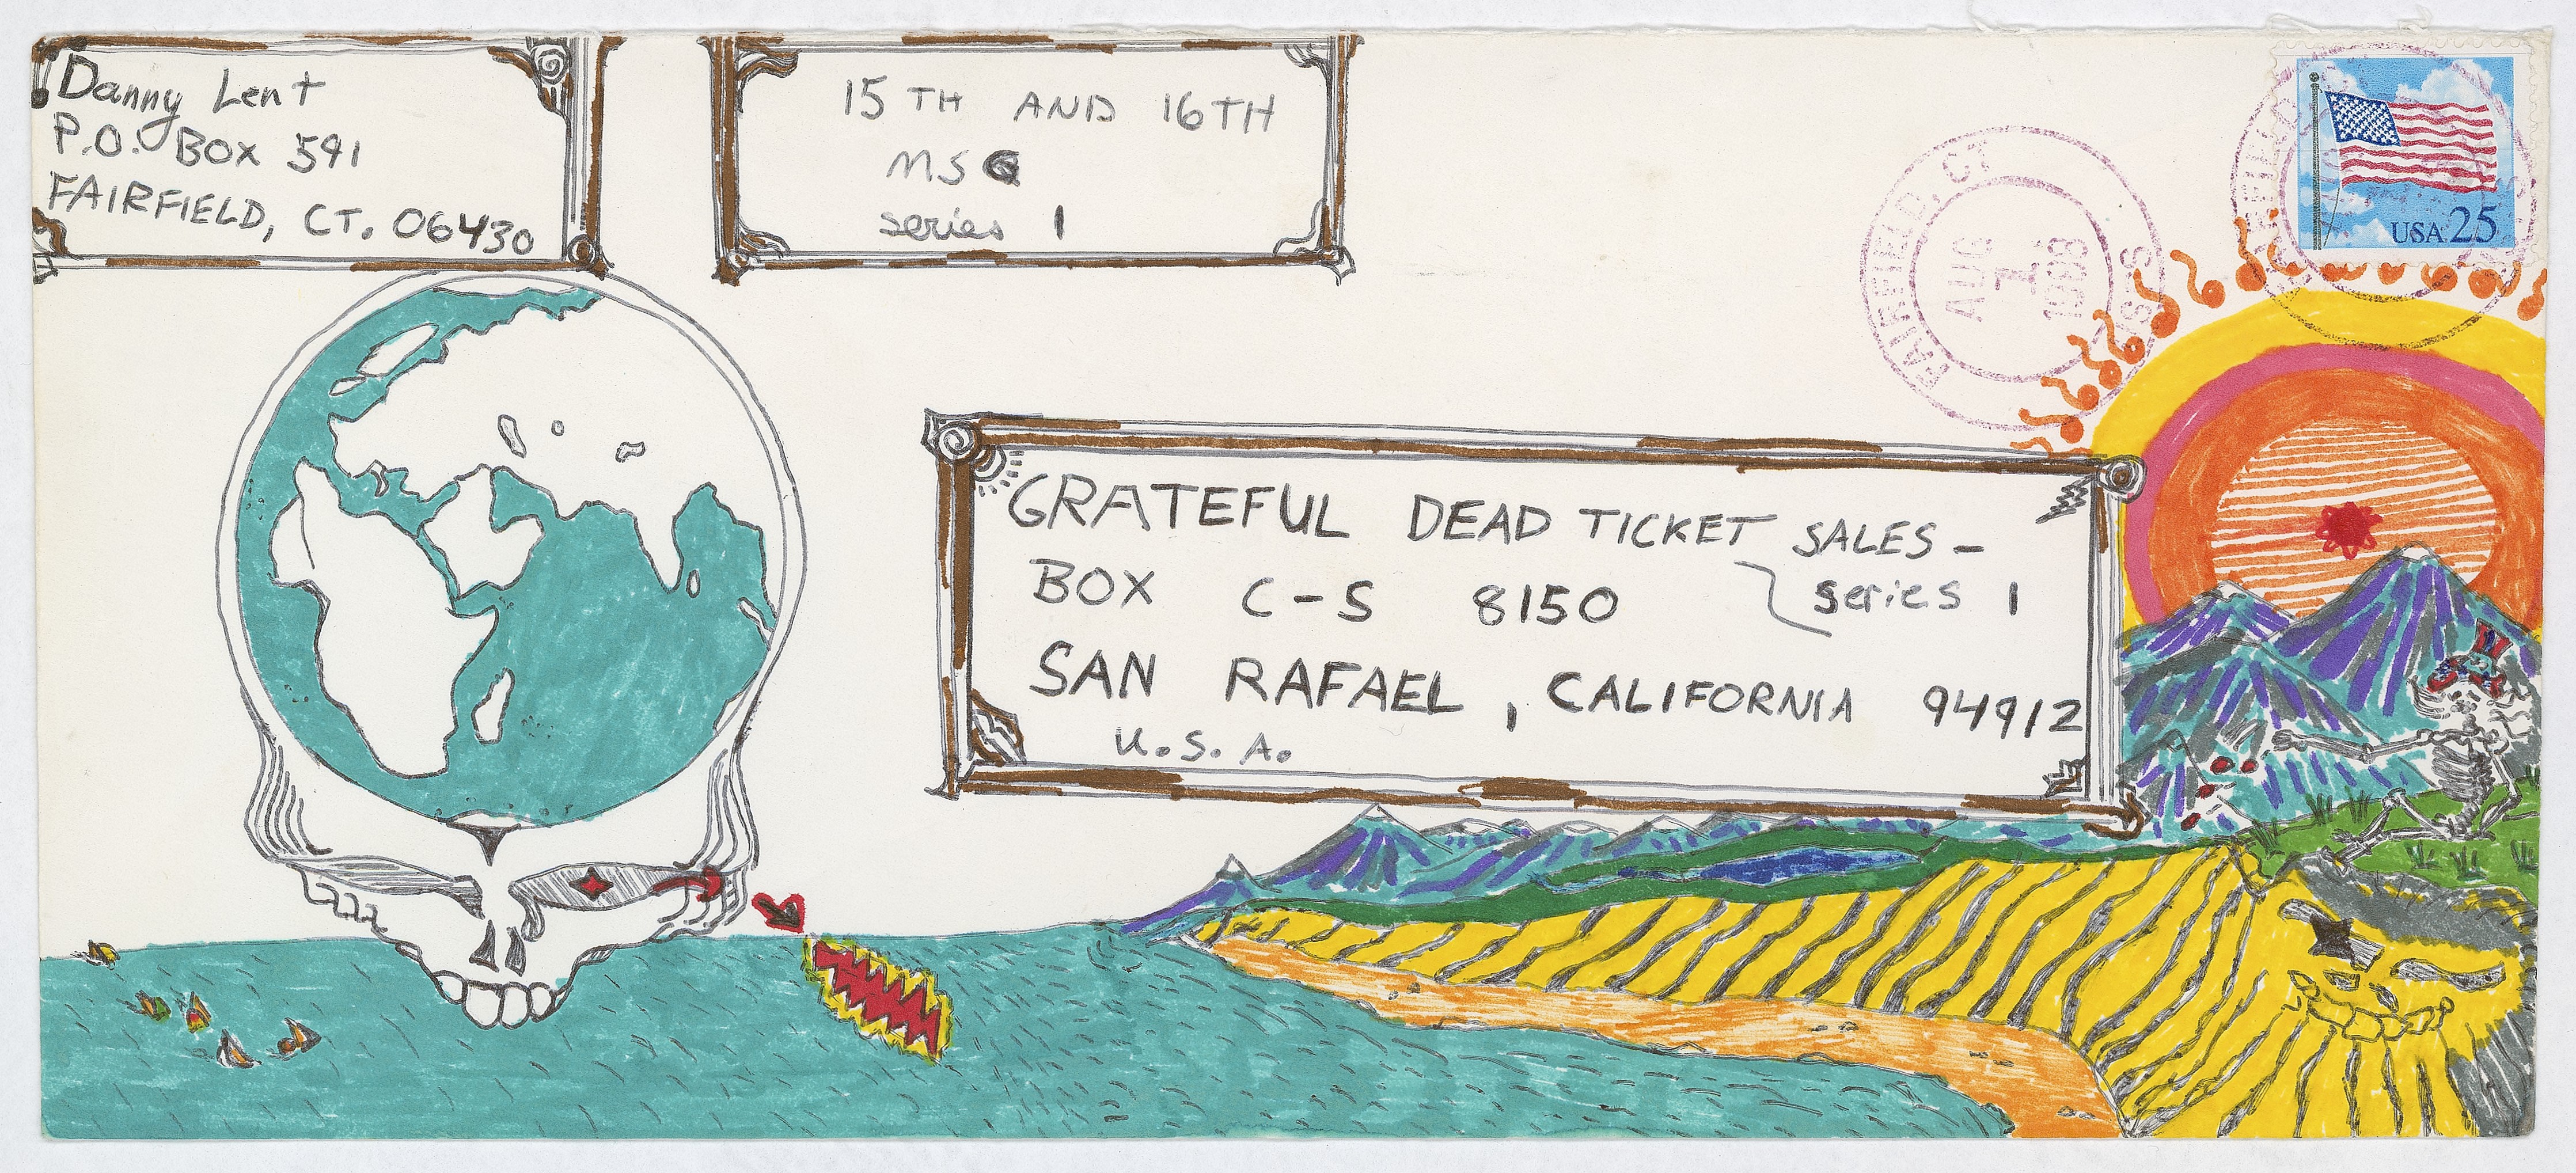 Danny Lent
P.O. Box 591
FAIRFIELD, CT. 06430
15TH AND 16TH
MSG
series 1
FAIRFIELD, CT
AUG
1
1988
USPS
USA 25
GRATEFUL DEAD TICKET SALES -
series 1
BOX C-S 8150
SAN RAFAEL, CALIFORNIA 94912
U.S.A.